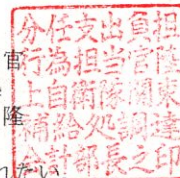 分任支出負担
行為担当官陸
上自衛隊関東
補給処調達
会計部長之印
官
隆
れたい